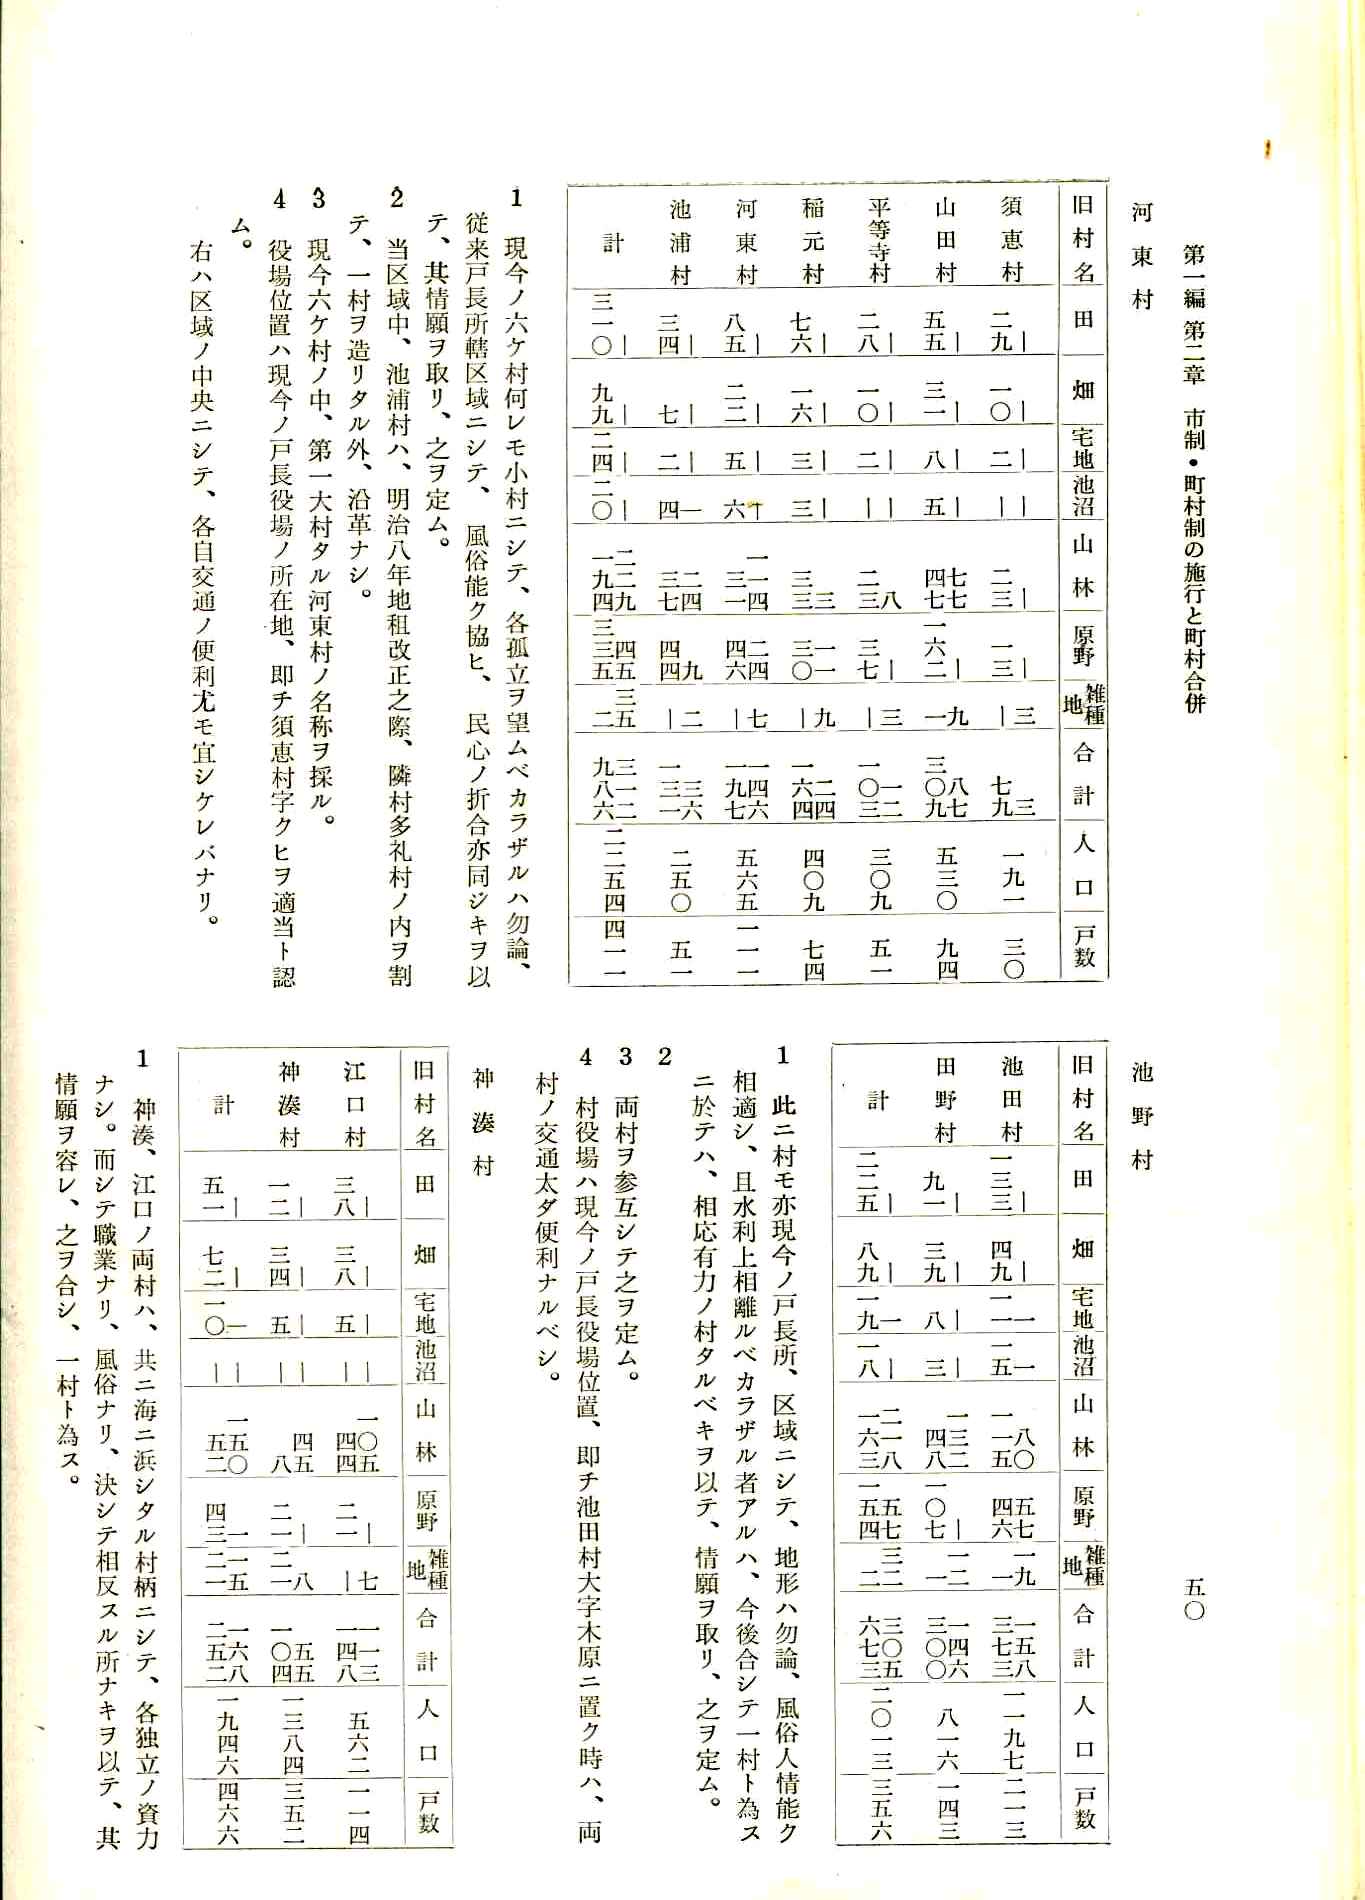 第一編 第二章 市制・町村制の施行と町村合併
五〇
河東村
旧村名 田 畑 宅地 池沼 山林 原野 雑種地 合計 人口 戸数
須恵村 二九 | 一〇 | 二 | | | 二三 | 一三 | | 三 七九 三 一九一 三〇
山田村 五五 | 三一 | 八 | 五 | 四七 七七 一六二 | 一 九 三〇九 八七 五三〇 九四
平等寺村 二八 | 一〇 | 二 | | | 二三 八 三七 | | 三 一〇三 一二 三〇九 五一
稲元村 七六 | 一六 | 三 | 三 | 三三 三 三〇 一一 | 九 一六四 二四 四〇九 七四
河東村 八五 | 二二 | 五 | 六 一 三一 一一四 四六 二四 | 七 一九七 一四六 五六五 一一一
池浦村 三四 | 七 | 二 | 四 一 三七 二四 四四 九 | 二 一三一 三六 二五〇 五一
計 三一〇 | 九九 | 二四 | 二〇 | 一九四 二二九 三三五 四五 二 三五 九八六 三一二 二二五四 四一一
1 現今ノ六ケ村何レモ小村ニシテ、各孤立ヲ望ムベカラザルハ勿論、
従来戸長所轄区域ニシテ、風俗能ク協ヒ、民心ノ折合亦同ジキヲ以
テ、其情願ヲ取リ、之ヲ定ム。
2 当区域中、池浦村ハ、明治八年地租改正之際、隣村多礼村ノ内ヲ割
テ、一村ヲ造リタル外、沿革ナシ。
3 現今六ケ村ノ中、第一大村タル河東村ノ名称ヲ採ル。
4 役場位置ハ現今ノ戸長役場ノ所在地、即チ須恵村字クヒヲ適当ト認
ム。
右ハ区域ノ中央ニシテ、各自交通ノ便利尤モ宜シケレバナリ。
池野村
旧村名 田 畑 宅地 池沼 山林 原野 雑種地 合計 人口 戸数
池田村 一三三 | 四九 | 一一 一 一五 一 一一五 八〇 四六 五七 一 一九 三七三 一五八 一一九七 二一三
田野村 九一 | 三九 | 八 | 三 | 四八 一三二 一〇七 | 一 一二 三〇〇 一四六 八一六 一四三
計 二二五 | 八九 | 一九 一 一八 | 一六三 二一八 一五四 五七 二 三二 六七三 三〇五 二〇一三 三五六
1 此ニ村モ亦現今ノ戸長所、区域ニシテ、地形ハ勿論、風俗人情能ク
相適シ、且水利上相離ルベカラザル者アルハ、今後合シテ一村ト為ス
ニ於テハ、相応有力ノ村タルベキヲ以テ、情願ヲ取リ、之ヲ定ム。
2
3 両村ヲ参互シテ之ヲ定ム。
4 村役場ハ現今ノ戸長役場位置、即チ池田村大字木原ニ置ク時ハ、両
村ノ交通太ダ便利ナルベシ。
神湊村
旧村名 田 畑 宅地 池沼 山林 原野 雑種地 合計 人口 戸数
江口村 三八 | 三八 | 五 | | | 四四 一〇五 二一 | | 七 一四八 一一三 五六二 一一四
神湊村 一二 | 三四 | 五 | | | 八 四五 二一 | 二一 八 一〇四 五五 一三八四 三五二
計 五一 | 七二 | 一〇 一 | | 五二 一五〇 四三 一 二一 一五 二五二 一六八 一九四六 四六六
1 神湊、江口ノ両村ハ、共ニ海ニ浜シタル村柄ニシテ、各独立ノ資力
ナシ。而シテ職業ナリ、風俗ナリ、決シテ相反スル所ナキヲ以テ、其
情願ヲ容レ、之ヲ合シ、一村ト為ス。